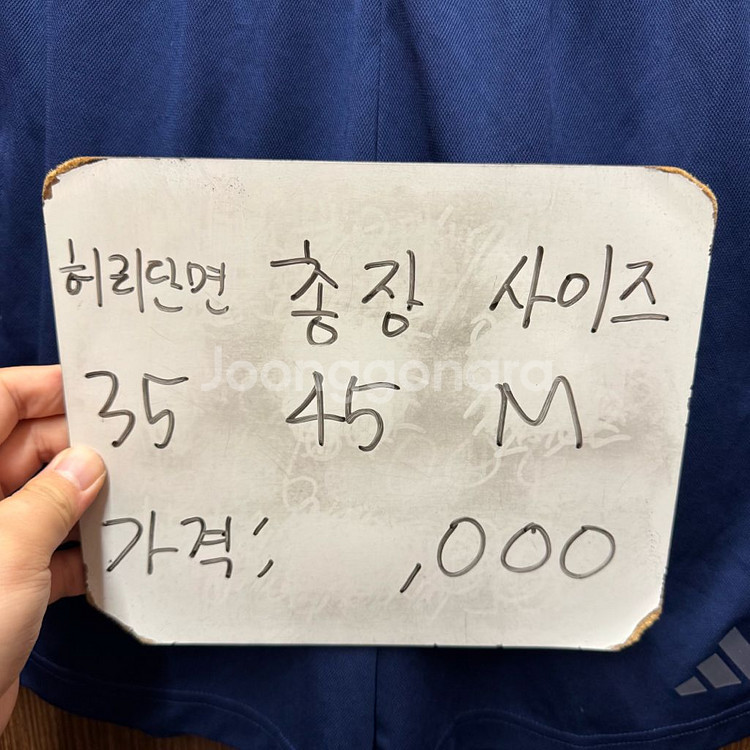 허리단면 총장 사이즈
Joonggonara
35 45 M
가격; ,000